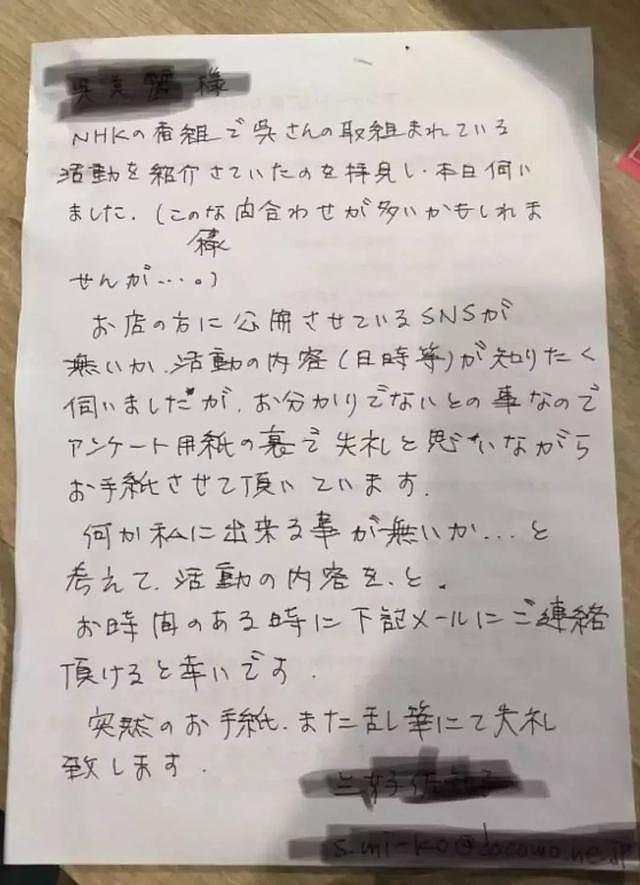 様
NHKの番組で呉さんの取組まれている
活動を紹介さていたのを拝見し、本日伺い
ました。(このな内合わせが多いかもしれま
様
せんが…。)
お店の方に公開させているSNSが
無いか、活動の内容(日時等)が知りたく
伺いましたが、お分かりでないとの事なので
アンケート用紙の裏で失礼と思いながら
お手紙させて頂いています。
何か私に出来る事が無いか…と
考えて、活動の内容を、と。
お時間のある時に下記メールにご連絡
頂けると幸いです。
突然のお手紙、また乱し筆にて失礼
致します。